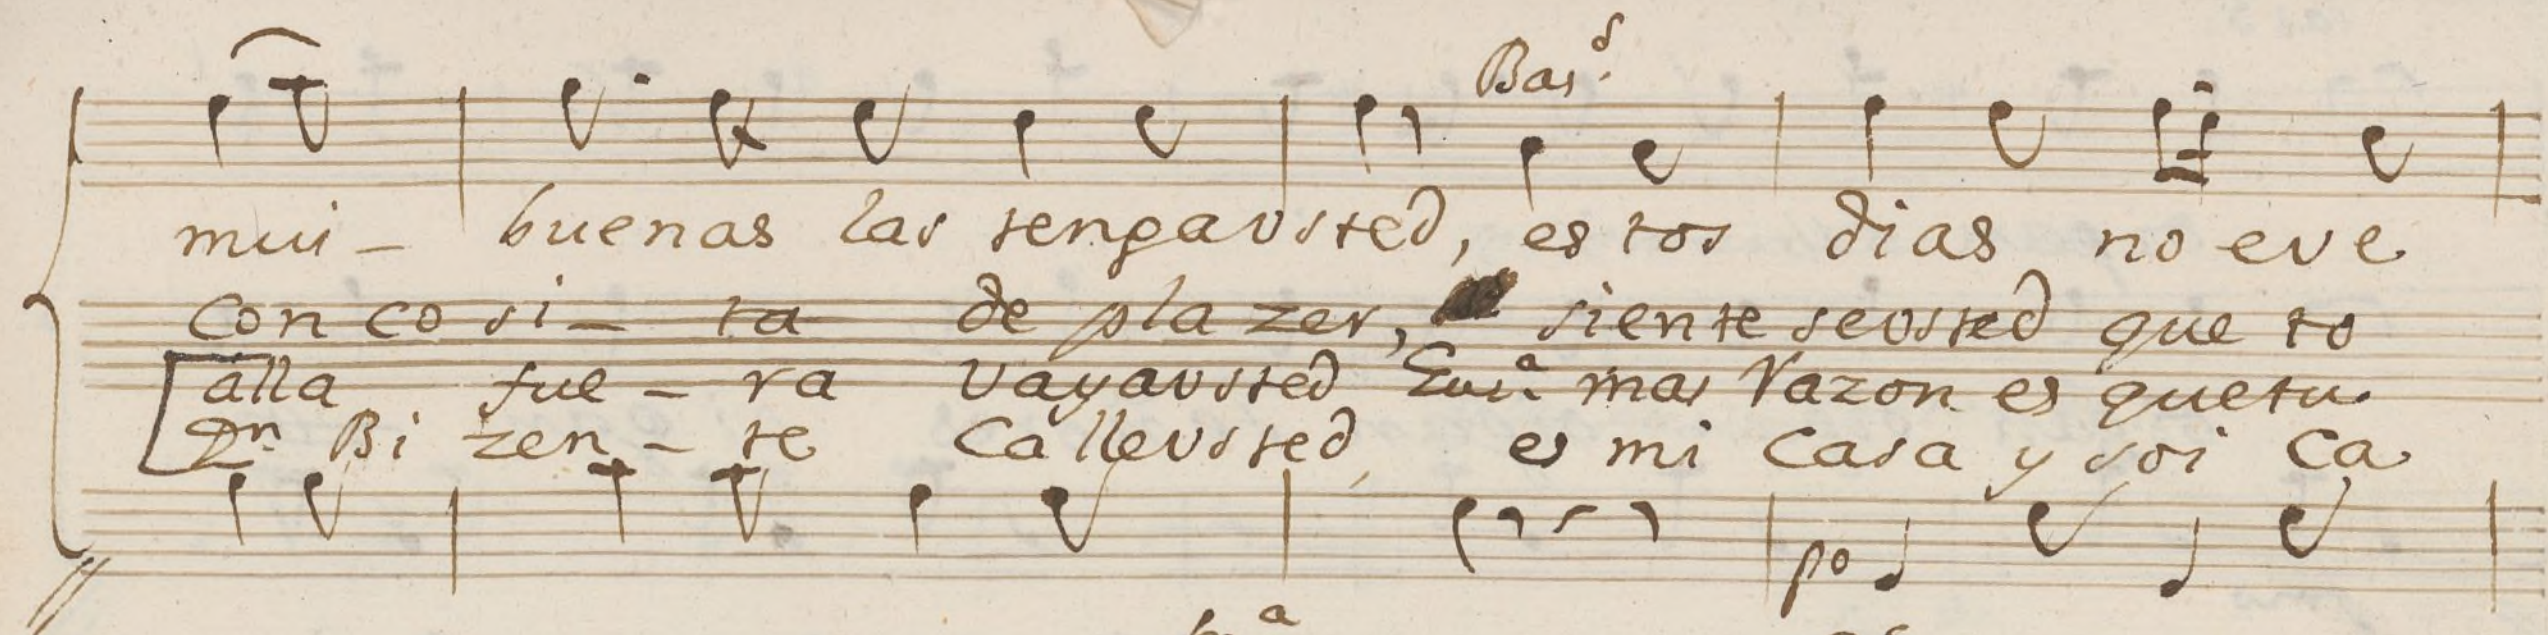 Bas.s
mui - buenas las tengavsted, es tos dias no eve
Con co si - ta de pla zer, siente sevsted que to
alla fue - ra vayavsted mas Razon es quetu
Dn Bi zen - te Callevsted, es mi Casa y soi Ca
po
a